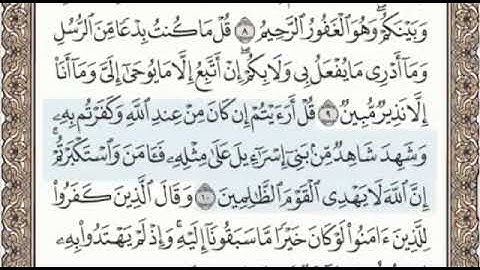 وَبَيْنَكُمْ ۖ وَهُوَ ٱلْغَفُورُ ٱلرَّحِيمُ ٨ قُلْ مَا كُنتُ بِدْعًا مِّنَ ٱلرُّسُلِ
وَمَآ أَدْرِى مَا يُفْعَلُ بِى وَلَا بِكُمْ ۖ إِنْ أَتَّبِعُ إِلَّا مَا يُوحَىٰٓ إِلَىَّ وَمَآ أَنَا۠
إِلَّا نَذِيرٌ مُّبِينٌ ٩ قُلْ أَرَءَيْتُمْ إِن كَانَ مِنْ عِندِ ٱللَّهِ وَكَفَرْتُم بِهِۦ
وَشَهِدَ شَاهِدٌ مِّنۢ بَنِىٓ إِسْرَٰٓءِيلَ عَلَىٰ مِثْلِهِۦ فَـَٔامَنَ وَٱسْتَكْبَرْتُمْ ۖ
إِنَّ ٱللَّهَ لَا يَهْدِى ٱلْقَوْمَ ٱلظَّـٰلِمِينَ ١٠ وَقَالَ ٱلَّذِينَ كَفَرُوا۟
لِلَّذِينَ ءَامَنُوا۟ لَوْ كَانَ خَيْرًا مَّا سَبَقُونَآ إِلَيْهِ ۚ وَإِذْ لَمْ يَهْتَدُوا۟ بِهِۦ